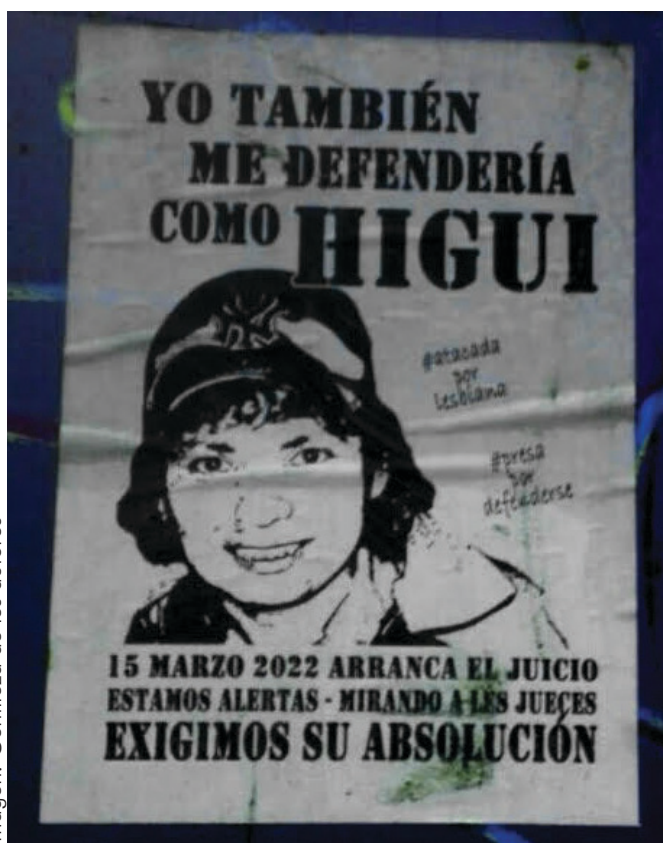 YO TAMBIÉN
ME DEFENDERÍA
COMO HIGUI
NY
#atacada
por
lesbiana
#presa
por
defenderse
15 MARZO 2022 ARRANCA EL JUICIO
ESTAMOS ALERTAS - MIRANDO A LES JUECES
EXIGIMOS SU ABSOLUCIÓN